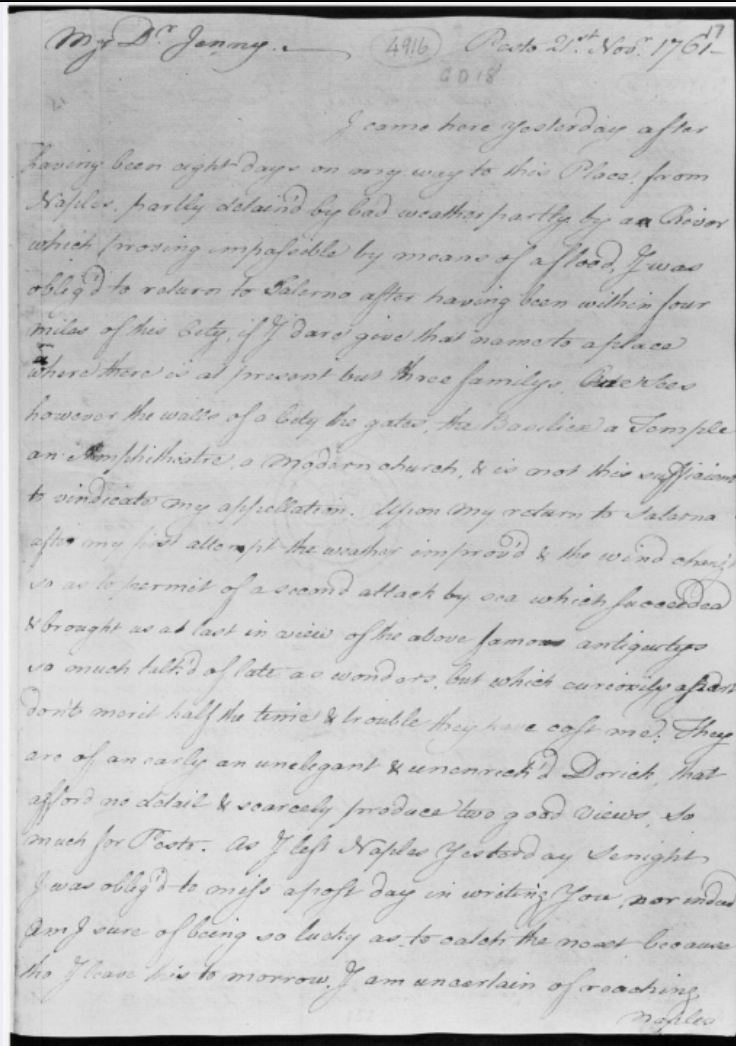 17
My Dr. Jenny. 4916 Pesto 21st. Novr. 1761
GD18
I came here yesterday after
having been eight days on my way to this Place from
Naples. partly detain'd by bad weather partly by a River
which proving impassible by means of a flood, I was
oblig'd to return to Salerno after having been within four
miles of this City, if I dare give that name to a place
where there is at present but three familys. One sees
however the walls of a City the gates, the Basilica a Temple
an Amphitheatre, a modern church, & is not this sufficient
to vindicate my appellation. Upon my return to Salerno
after my first attempt the weather improv'd & the wind chang'd
so as to permit of a second attack by sea which succeeded
& brought us at last in view of the above famous antiquitys
so much talk'd of late as wonders, but which curiosity apart
don't merit half the time & trouble they have cost me. They
are of an early an unelegant & unenrich'd Dorick, that
afford no detail & scarcely produce two good views, so
much for Pesto. As I left Naples Yesterday Senight
I was oblig'd to miss a post day in writing You, nor indeed
am I sure of being so lucky as to catch the next because
tho I leave this to morrow, I am uncertain of reaching
Naples